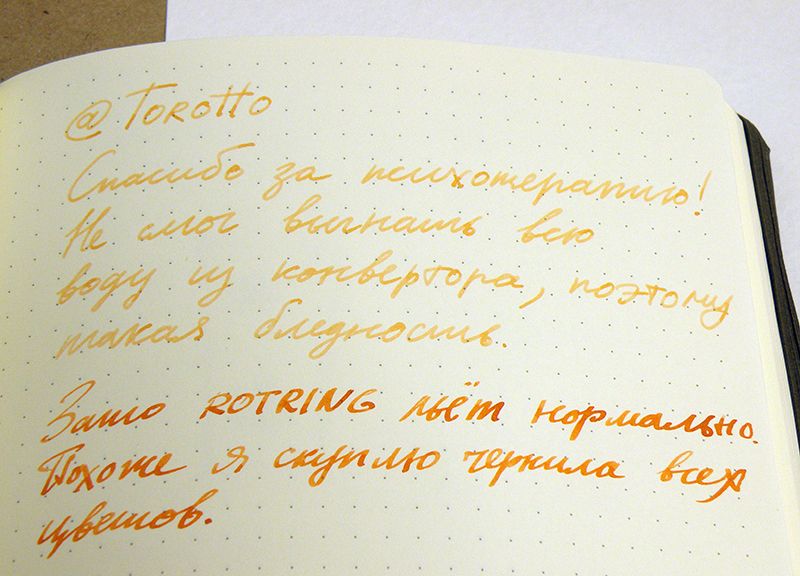 @ Torotto
Спасибо за психотерапию!
Не смог выгнать всю
воду из конвертора, поэтому
такая бледность.
Зато ROTRING льёт нормально.
Похоже я скуплю чернила всех
цветов.